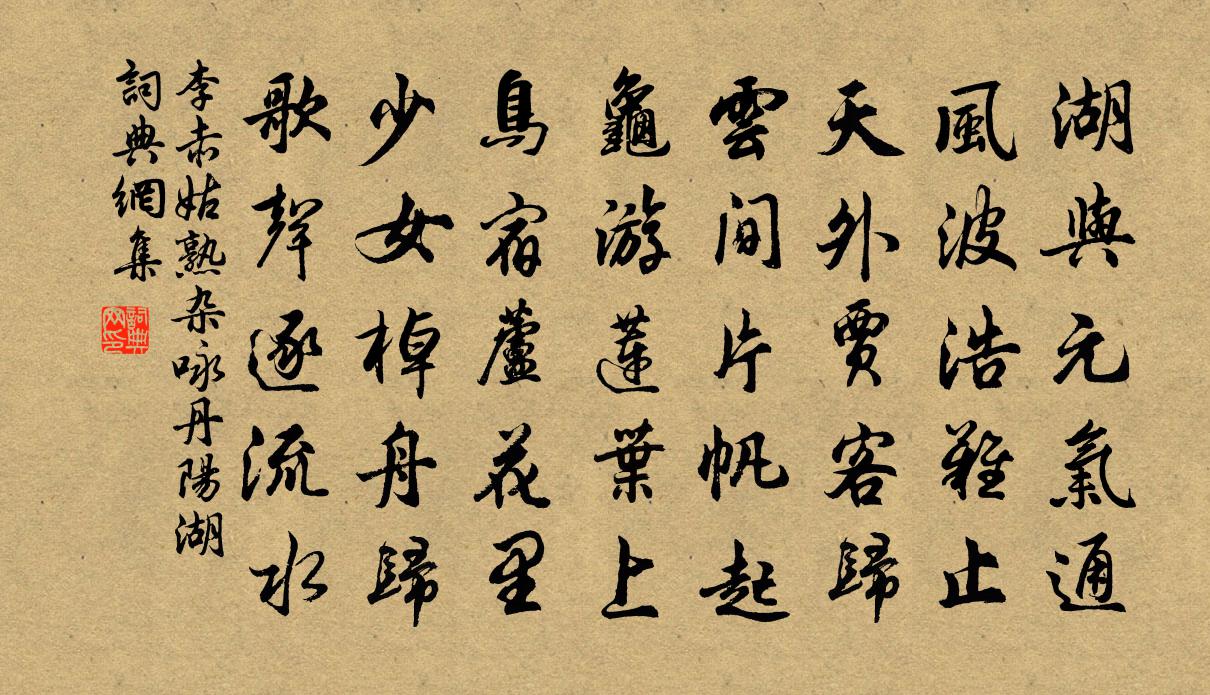 湖與元氣通
風波浩難止
天外賈客歸
雲間片帆起
龜游蓮葉上
鳥宿蘆花里
少女棹舟歸
歌聲逐流水
李赤姑熟杂咏丹陽湖
詞典網集
詞典网印